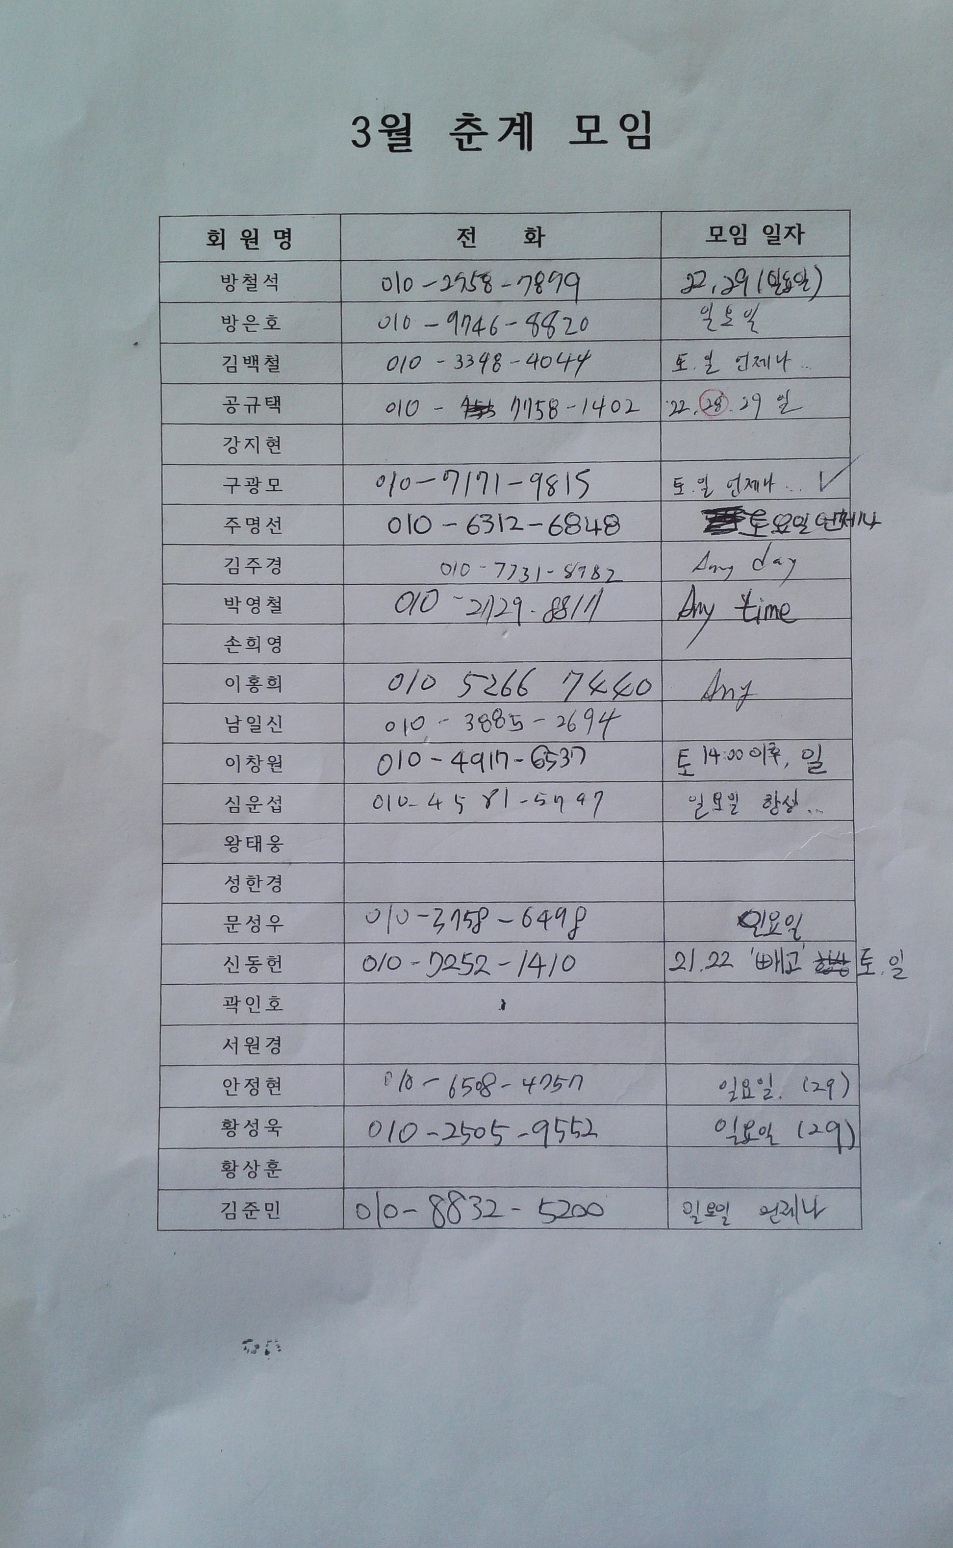 3월 춘계 모임
회 원 명 전 화 모임 일자
방철석 010-2958-7899 22, 29 (일요일)
방은호 010-9746-8820 일요일
김백철 010-3398-4044 토.일 언제나..
공규택 010-7758-1402 22. 28. 29 일
강지현
구광모 010-7171-9815 토.일 언제나... ✓
주명선 010-6312-6848 토요일 언제나
김주경 010-7731-8782 Any day
박영철 010-2729-8817 Any time
손희영
이홍희 010 5266 7440 Any
남일신 010-3885-2694
이창원 010-4917-6537 토 14:00 이후, 일
심운섭 010-4581-5797 일요일 항상..
왕태웅
성한경
문성우 010-3758-6498 일요일
신동헌 010-7252-1410 21.22 '빼고' 토.일
곽인호
서원경
안정현 010-6508-4757 일요일. (29)
황성욱 010-2505-9552 일요일 (29)
황상훈
김준민 010-8832-5200 일요일 언제나